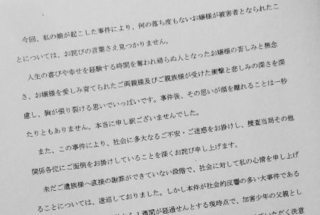 今回、私の娘が起こした事件により、何の落ち度もないお嬢様が被害者となられたこ
とについては、お詫びの言葉さえ見つかりません。
人生の喜びや幸せを経験する時間を奪われ帰らぬ人となったお嬢様の苦しみと無念
さ、お嬢様を愛しみ育てられたご両親様及びご親族様が受けた衝撃と悲しみの深さを
慮し、胸が張り裂ける思いでいっぱいです。事件後、その思いが頭を離れることは一秒
たりともありません。本当に申し訳ございませんでした。
また、この事件により、社会に多大なるご不安・ご迷惑をお掛けし、捜査当局その他
関係各位にご面倒をお掛けしていることを深くお詫び申し上げます。
未だご遺族様へ直接の謝罪ができていない段階で、社会に対して私の心情を申し上げ
ることについては、逡巡しておりました。しかし本件が社会的反響の多い大事件である
1週間が経過せんとする現時点で、加害少年の父親とし
いただく決意